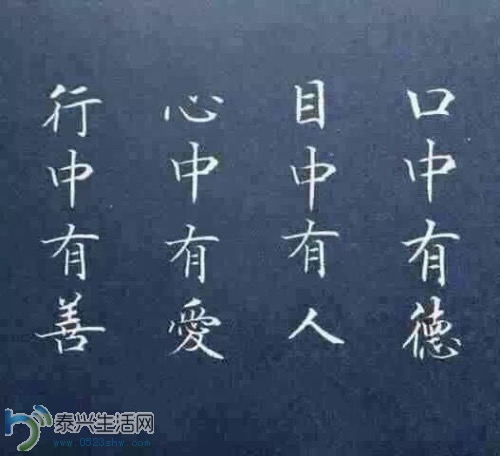 口中有德
目中有人
心中有愛
行中有善
泰兴生活网
www.0523shw.com